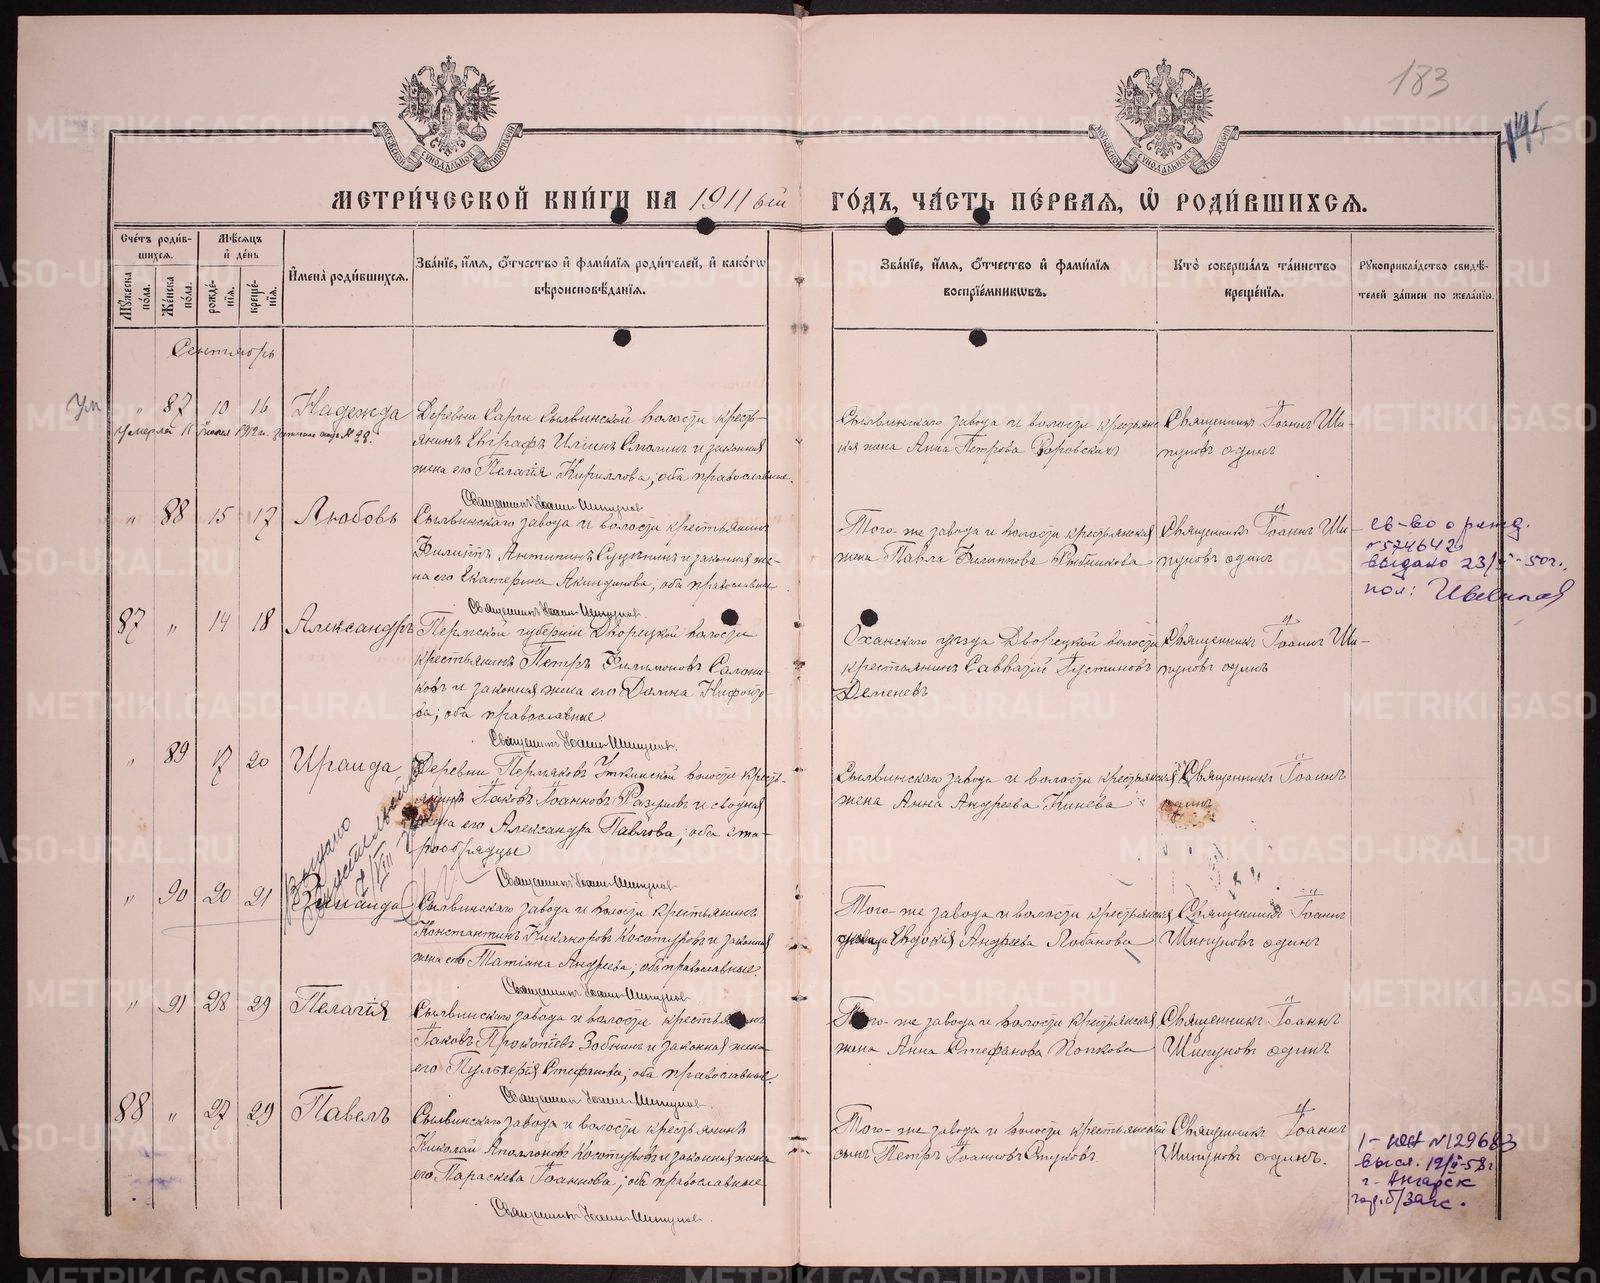 183
МЕТРИ́ЧЕСКОЙ КНИ́ГИ НА 1911 ый ГО́ДЪ, ЧА́СТЬ ПЕ́РВАЯ, Ѿ РОДИ́ВШИХСЯ.
Сче́тъ роди́в-
шихся.
Му́жеска по́ла.
Же́нска по́ла.
Мѣ́сяцъ
и҆ де́нь
рожде́-
нїя.
креще́-
нїя.
И҆мена̀ роди́вшихся.
Зва́нїе, и҆́мя, ѻ҆́тчество и҆ фами́лїя роди́телей, и҆ како́гѡ
вѣроисповѣ́данїя.
Зва́нїе, и҆́мя, ѻ҆́тчество и҆ фами́лїя
воспрїе́мникѡвъ.
Кто̀ соверша́лъ та́инство
креще́нїя.
Рꙋкоприкла́дство свидѣ́-
телей за́писи по жела́нїю.
Сентябрь
Ум
" 87 10 16 Надежда
Умерла 11 1912 г. № 28.
Деревни Сарги Сылвинской волости кресть-
янинъ Евграфъ Илiинъ Смолинъ и законная
жена его Пелагiя Кириллова; оба православные.
Священникъ Iоаннъ Шипуновъ
Сылвинскаго завода и волости крестьянс
кая жена Анна Петрова
Священникъ Iоаннъ Ши-
пуновъ одинъ
" 88 15 17 Любовь
Сылвинскаго завода и волости крестьянинъ
Филиппъ Антипинъ и законная же-
на его Екатерина Акиндинова; оба православные
Священникъ Iоаннъ Шипуновъ
Того-же завода и волости крестьянская
жена Павла Филиппова Рыбникова
Священникъ Iоаннъ Ши-
пуновъ одинъ
св-во о рожд.
№574642
выдано 23/ -50г.
пол:
87 " 14 18 Александръ
Пермской губернiи Дворецкой волости
крестьянинъ Петръ Филимоновъ Салони-
ковъ и законная жена его Домна Нифонто-
ва; оба православные
Священникъ Iоаннъ Шипуновъ
Оханскаго уѣзда Дворецкой волости
крестьянинъ Савватiй Iустиновъ
Деменевъ
Священникъ Iоаннъ Ши-
пуновъ одинъ
" 89 17 20 Ираида
Деревни Пермяковъ Уткинской волости кресть-
янинъ Iаковъ Iоанновъ и сводная
жена его Александра Павлова; оба ста-
рообрядцы
Священникъ Iоаннъ Шипуновъ
Сылвинскаго завода и волости крестьянская
жена Анна Андреева Кинева
Священникъ Iоаннъ
одинъ
Выдано
свидетельство
" 90 20 21 Зинаида
Сылвинскаго завода и волости крестьянинъ
Константинъ Никаноровъ Косотуровъ и законная
жена его Татiана Андреева; оба православные.
Священникъ Iоаннъ Шипуновъ
Того-же завода и волости крестьянская
девица Евдокiя Андреева Лобанова
Священникъ Iоаннъ
Шипуновъ одинъ
" 91 28 29 Пелагiя
Сылвинскаго завода и волости крестьянинъ
Iаковъ Прокопiевъ Зобнинъ и законная жена
его Пульхерiя Стефанова; оба православные.
Священникъ Iоаннъ Шипуновъ
Того-же завода и волости крестьянская
жена Анна Стефанова Попкова
Священникъ Iоаннъ
Шипуновъ одинъ
88 " 27 29 Павелъ
Сылвинскаго завода и волости крестьянинъ
Николай Аполлоновъ Косотуровъ и законная жена
его Параскева Iоаннова; оба православные
Священникъ Iоаннъ Шипуновъ.
Того-же завода и волости крестьянскiй
сынъ Петръ Iоанновъ
Священникъ Iоаннъ
Шипуновъ одинъ.
№129683
высл. 19/ -58г
г. Ангарск
гор. б/загс.
METRIKI.GASO-URAL.RU